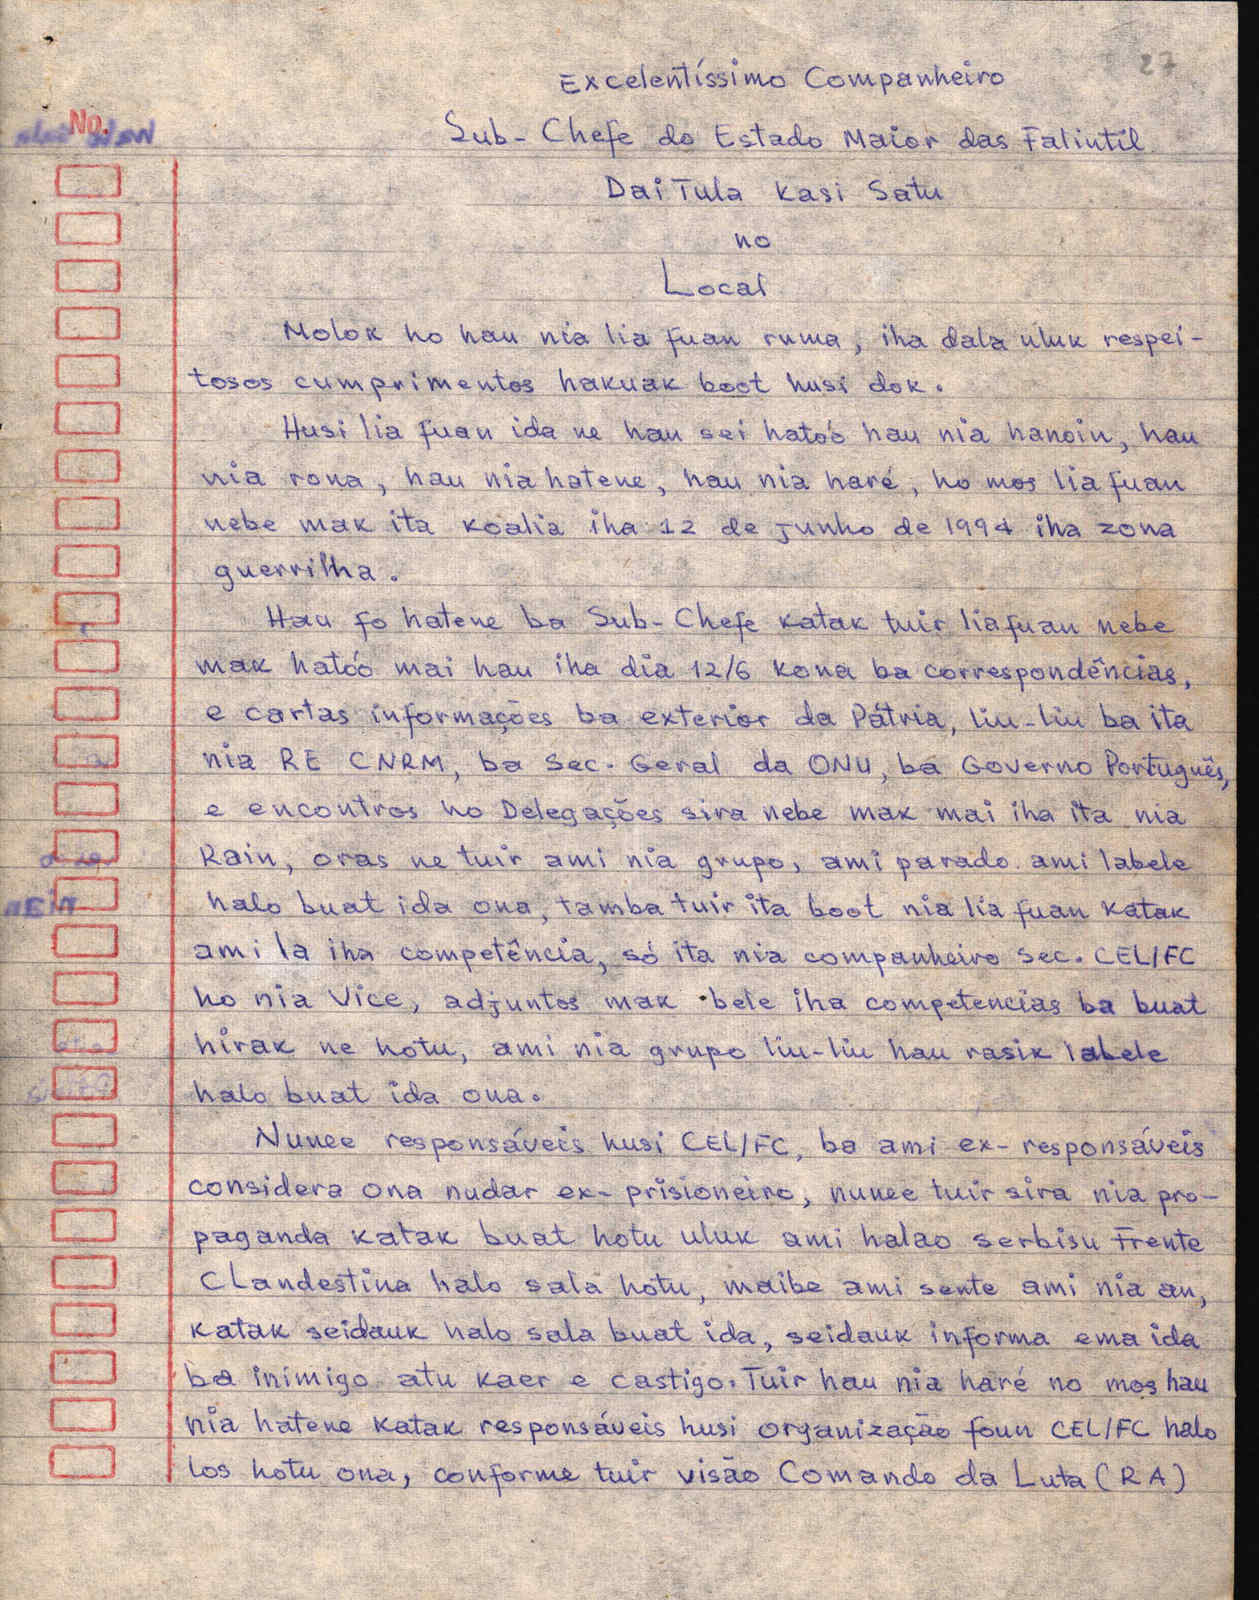 27
Excelentíssimo Companheiro
No.
Sub-Chefe do Estado Maior das Falintil
Dai Tula Kasi Satu
no
Local
Molok ho hau nia lia fuan ruma, iha dala uluk respei-
tosos cumprimentos hakuak boot husi dok.
Husi lia fuan ida ne hau sei hato'o hau nia hanoin, hau
nia rona, hau nia hatene, hau nia haré, ho mos lia fuan
nebe mak ita koalia iha 12 de junho de 1994 iha zona
guerrilha.
Hau fo hatene ba Sub-Chefe katak tuir liafuan nebe
mak hato'o mai hau iha dia 12/6 kona ba correspondências,
e cartas informações ba exterior da Pátria, liu-liu ba ita
nia RE CNRM, ba Sec. Geral da ONU, ba Governo Português,
e encontros ho Delegações sira nebe mak mai iha ita nia
Rain, oras ne tuir ami nia grupo, ami parado ami labele
halo buat ida ona, tamba tuir ita boot nia lia fuan katak
ami la iha competência, só ita nia companheiro Sec. CEL/FC
ho nia Vice, adjuntos mak bele iha competencias ba buat
hirak ne hotu, ami nia grupo liu-liu hau rasik labele
halo buat ida ona.
Nunee responsáveis husi CEL/FC, ba ami ex-responsáveis
considera ona nudar ex-prisioneiro, nunee tuir sira nia pro-
paganda katak buat hotu uluk ami halao serbisu Frente
Clandestina halo sala hotu, maibe ami sente ami nia an,
katak seidauk halo sala buat ida, seidauk informa ema ida
ba inimigo atu kaer e castigo. Tuir hau nia haré no mos hau
nia hatene katak responsáveis husi organização foun CEL/FC halo
los hotu ona, conforme tuir visão Comando da Luta (RA)